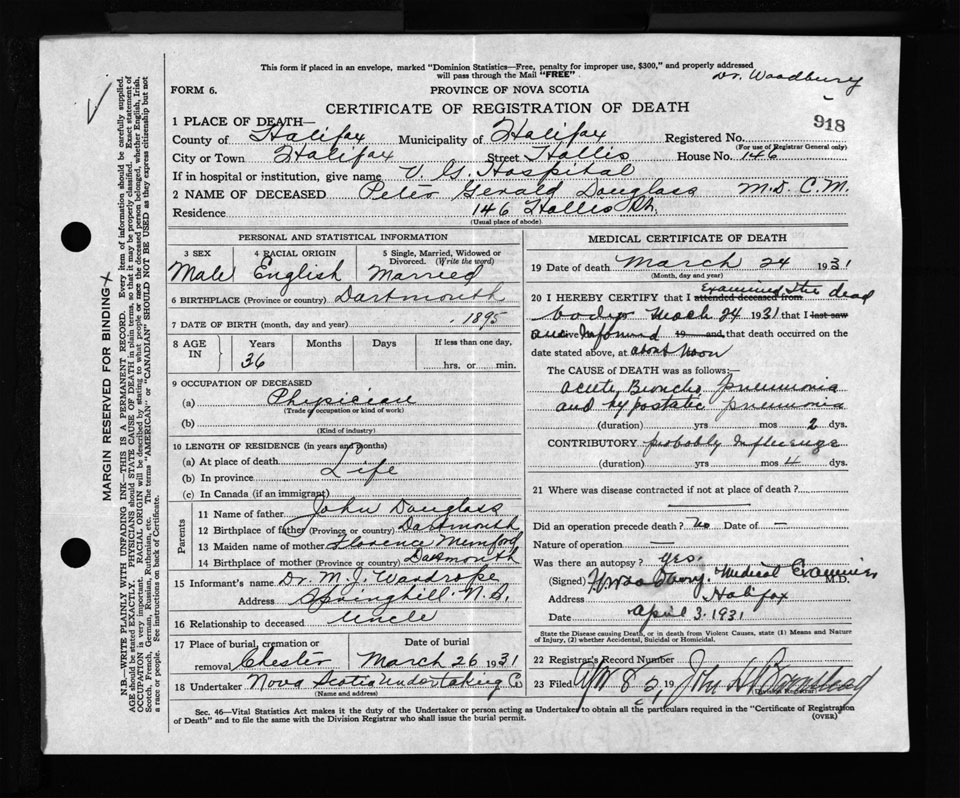 This form if placed in an envelope, marked "Dominion Statistics—Free, penalty for improper use, $300," and properly addressed
will pass through the Mail "FREE"
Dr. Woodbury
FORM 6.
PROVINCE OF NOVA SCOTIA
CERTIFICATE OF REGISTRATION OF DEATH
918
1 PLACE OF DEATH—
County of Halifax Municipality of Halifax Registered No.
(For use of Registrar General only)
City or Town Halifax Street Hollis House No. 146
If in hospital or institution, give name V. G. Hospital
2 NAME OF DECEASED Peter Gerald Douglass M.D.C.M.
Residence 146 Hollis St.
(Usual place of abode)
PERSONAL AND STATISTICAL INFORMATION
3 SEX 4 RACIAL ORIGIN 5 Single, Married, Widowed or
Divorced. (Write the word)
Male English Married
6 BIRTHPLACE (Province or country) Dartmouth
7 DATE OF BIRTH (month, day and year) 1895
8 AGE IN Years Months Days If less than one day,
36 hrs. or min.
9 OCCUPATION OF DECEASED
(a) Physician
(Trade or occupation or kind of work)
(b)
(Kind of industry)
10 LENGTH OF RESIDENCE (in years and months)
(a) At place of death
(b) In province Life
(c) In Canada (if an immigrant)
Parents
11 Name of father John Douglass
12 Birthplace of father (Province or country) Dartmouth
13 Maiden name of mother Florence
14 Birthplace of mother (Province or country) Dartmouth
15 Informant's name Dr. M. J. Wardrope
Address Springhill N.S.
16 Relationship to deceased Uncle
17 Place of burial, cremation or removal Chester Date of burial March 26 1931
18 Undertaker Nova Scotia Undertaking Co
(Name and address)
MEDICAL CERTIFICATE OF DEATH
19 Date of death March 24 1931
(Month, day and year)
20 I HEREBY CERTIFY that I attended deceased from Examined the dead
body March 24 1931 that I last saw
alive 19 and, that death occurred on
date stated above, at about noon
The CAUSE of DEATH was as follows:—
Acute Broncho pneumonia
and hypostatic pneumonia
(duration) yrs mos 2 dys.
CONTRIBUTORY probably Influenza
(duration) yrs mos dys.
21 Where was disease contracted if not at place of death?
Did an operation precede death? no Date of —
Nature of operation —
Was there an autopsy? yes.
(Signed) Medical Examiner M.D.
Address Halifax
Date April 3. 1931
State the Disease causing Death, or in death from Violent Causes, state (1) Means and Nature
of Injury, (2) whether Accidental, Suicidal or Homicidal.
22 Registrar's Record Number
23 Filed 19
Division Registrar
Sec. 46—Vital Statistics Act makes it the duty of the Undertaker or person acting as Undertaker to obtain all the particulars required in the "Certificate of Registration
of Death" and to file the same with the Division Registrar who shall issue the burial permit.
(OVER)
MARGIN RESERVED FOR BINDING
N.B.—WRITE PLAINLY WITH UNFADING INK—THIS IS A PERMANENT RECORD. Every item of information should be carefully supplied.
AGE should be stated EXACTLY. PHYSICIANS should STATE CAUSE OF DEATH in plain terms, so that it may be properly classified. Exact statement of
OCCUPATION is very important. RACIAL ORIGIN will be described by stating to what people or race the deceased person belonged, whether English, Irish,
Scotch, French, German, Russian, Ruthenian, etc. The terms "AMERICAN" or "CANADIAN" SHOULD NOT BE USED as they express citizenship but not
a race or people. See instructions on back of Certificate.